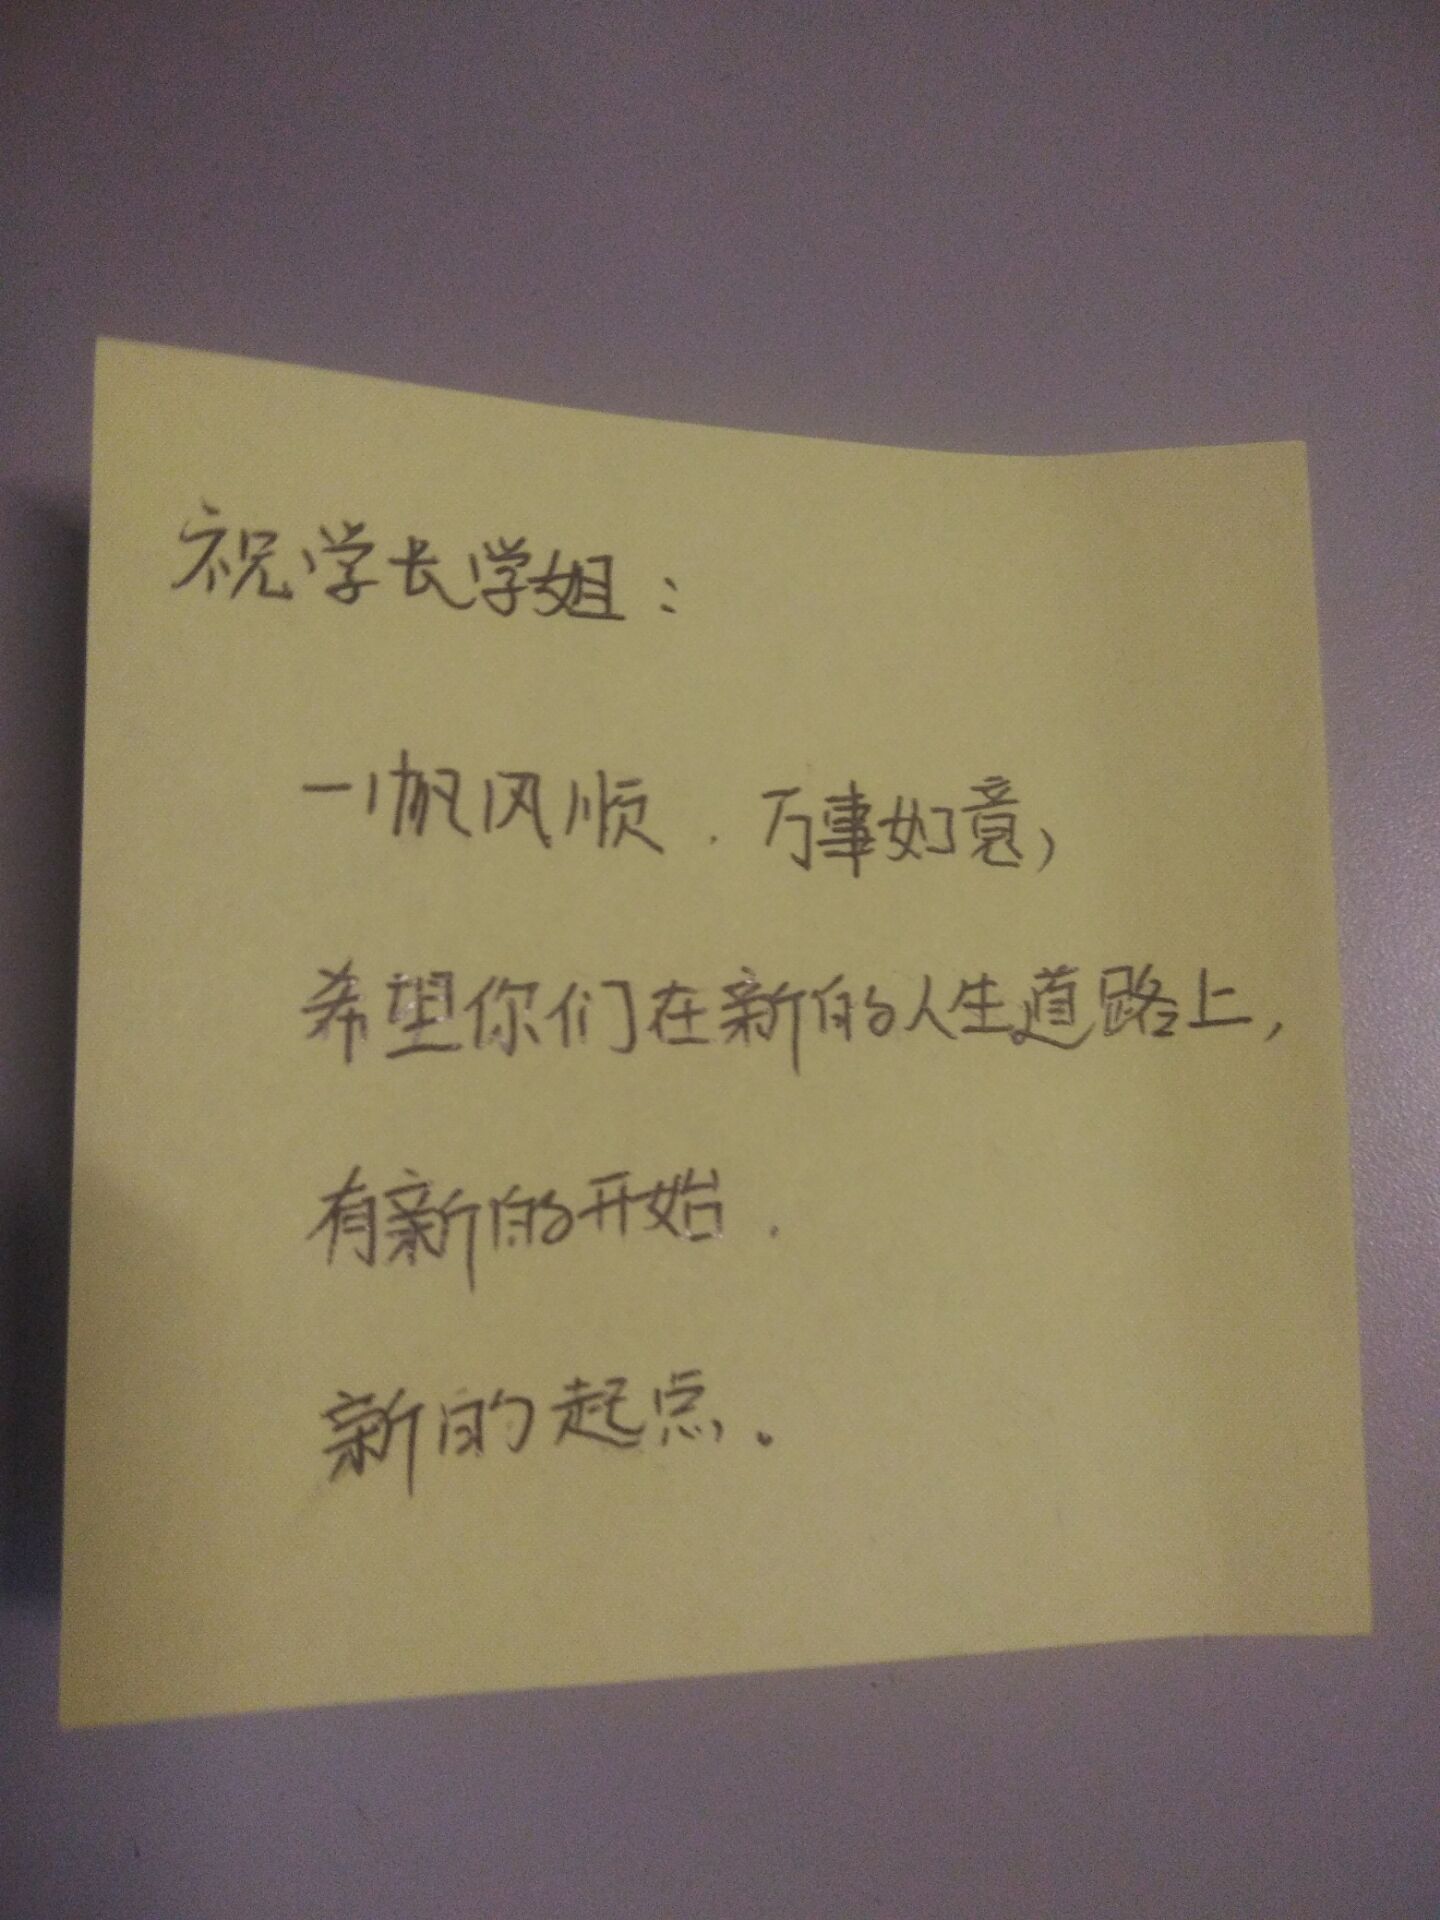 祝学长学姐：
一帆风顺，万事如意，
希望你们在新的人生道路上，
有新的开始，
新的起点。